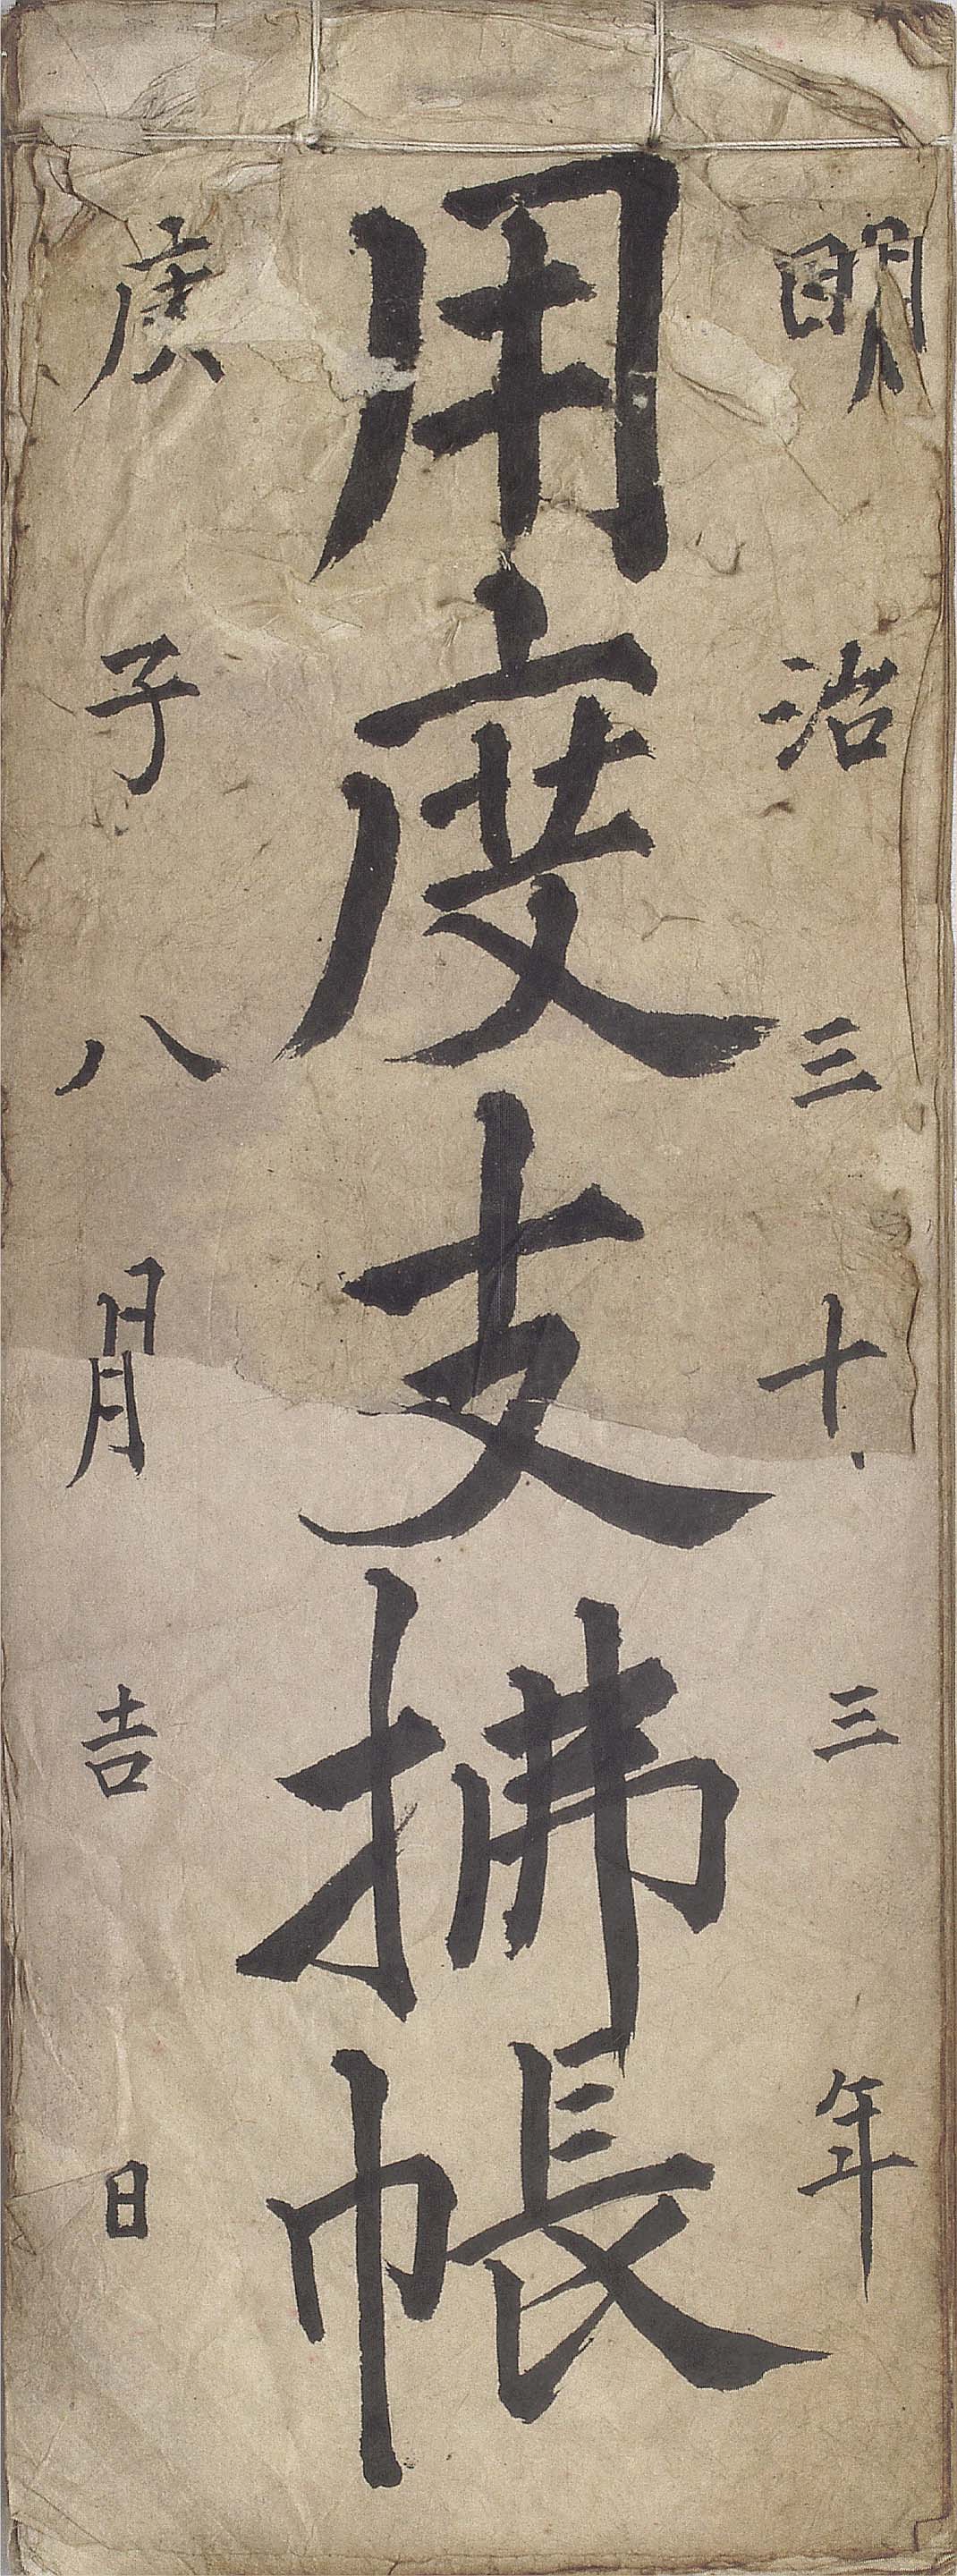 明治三十三年
用度支拂帳
庚子八月吉日